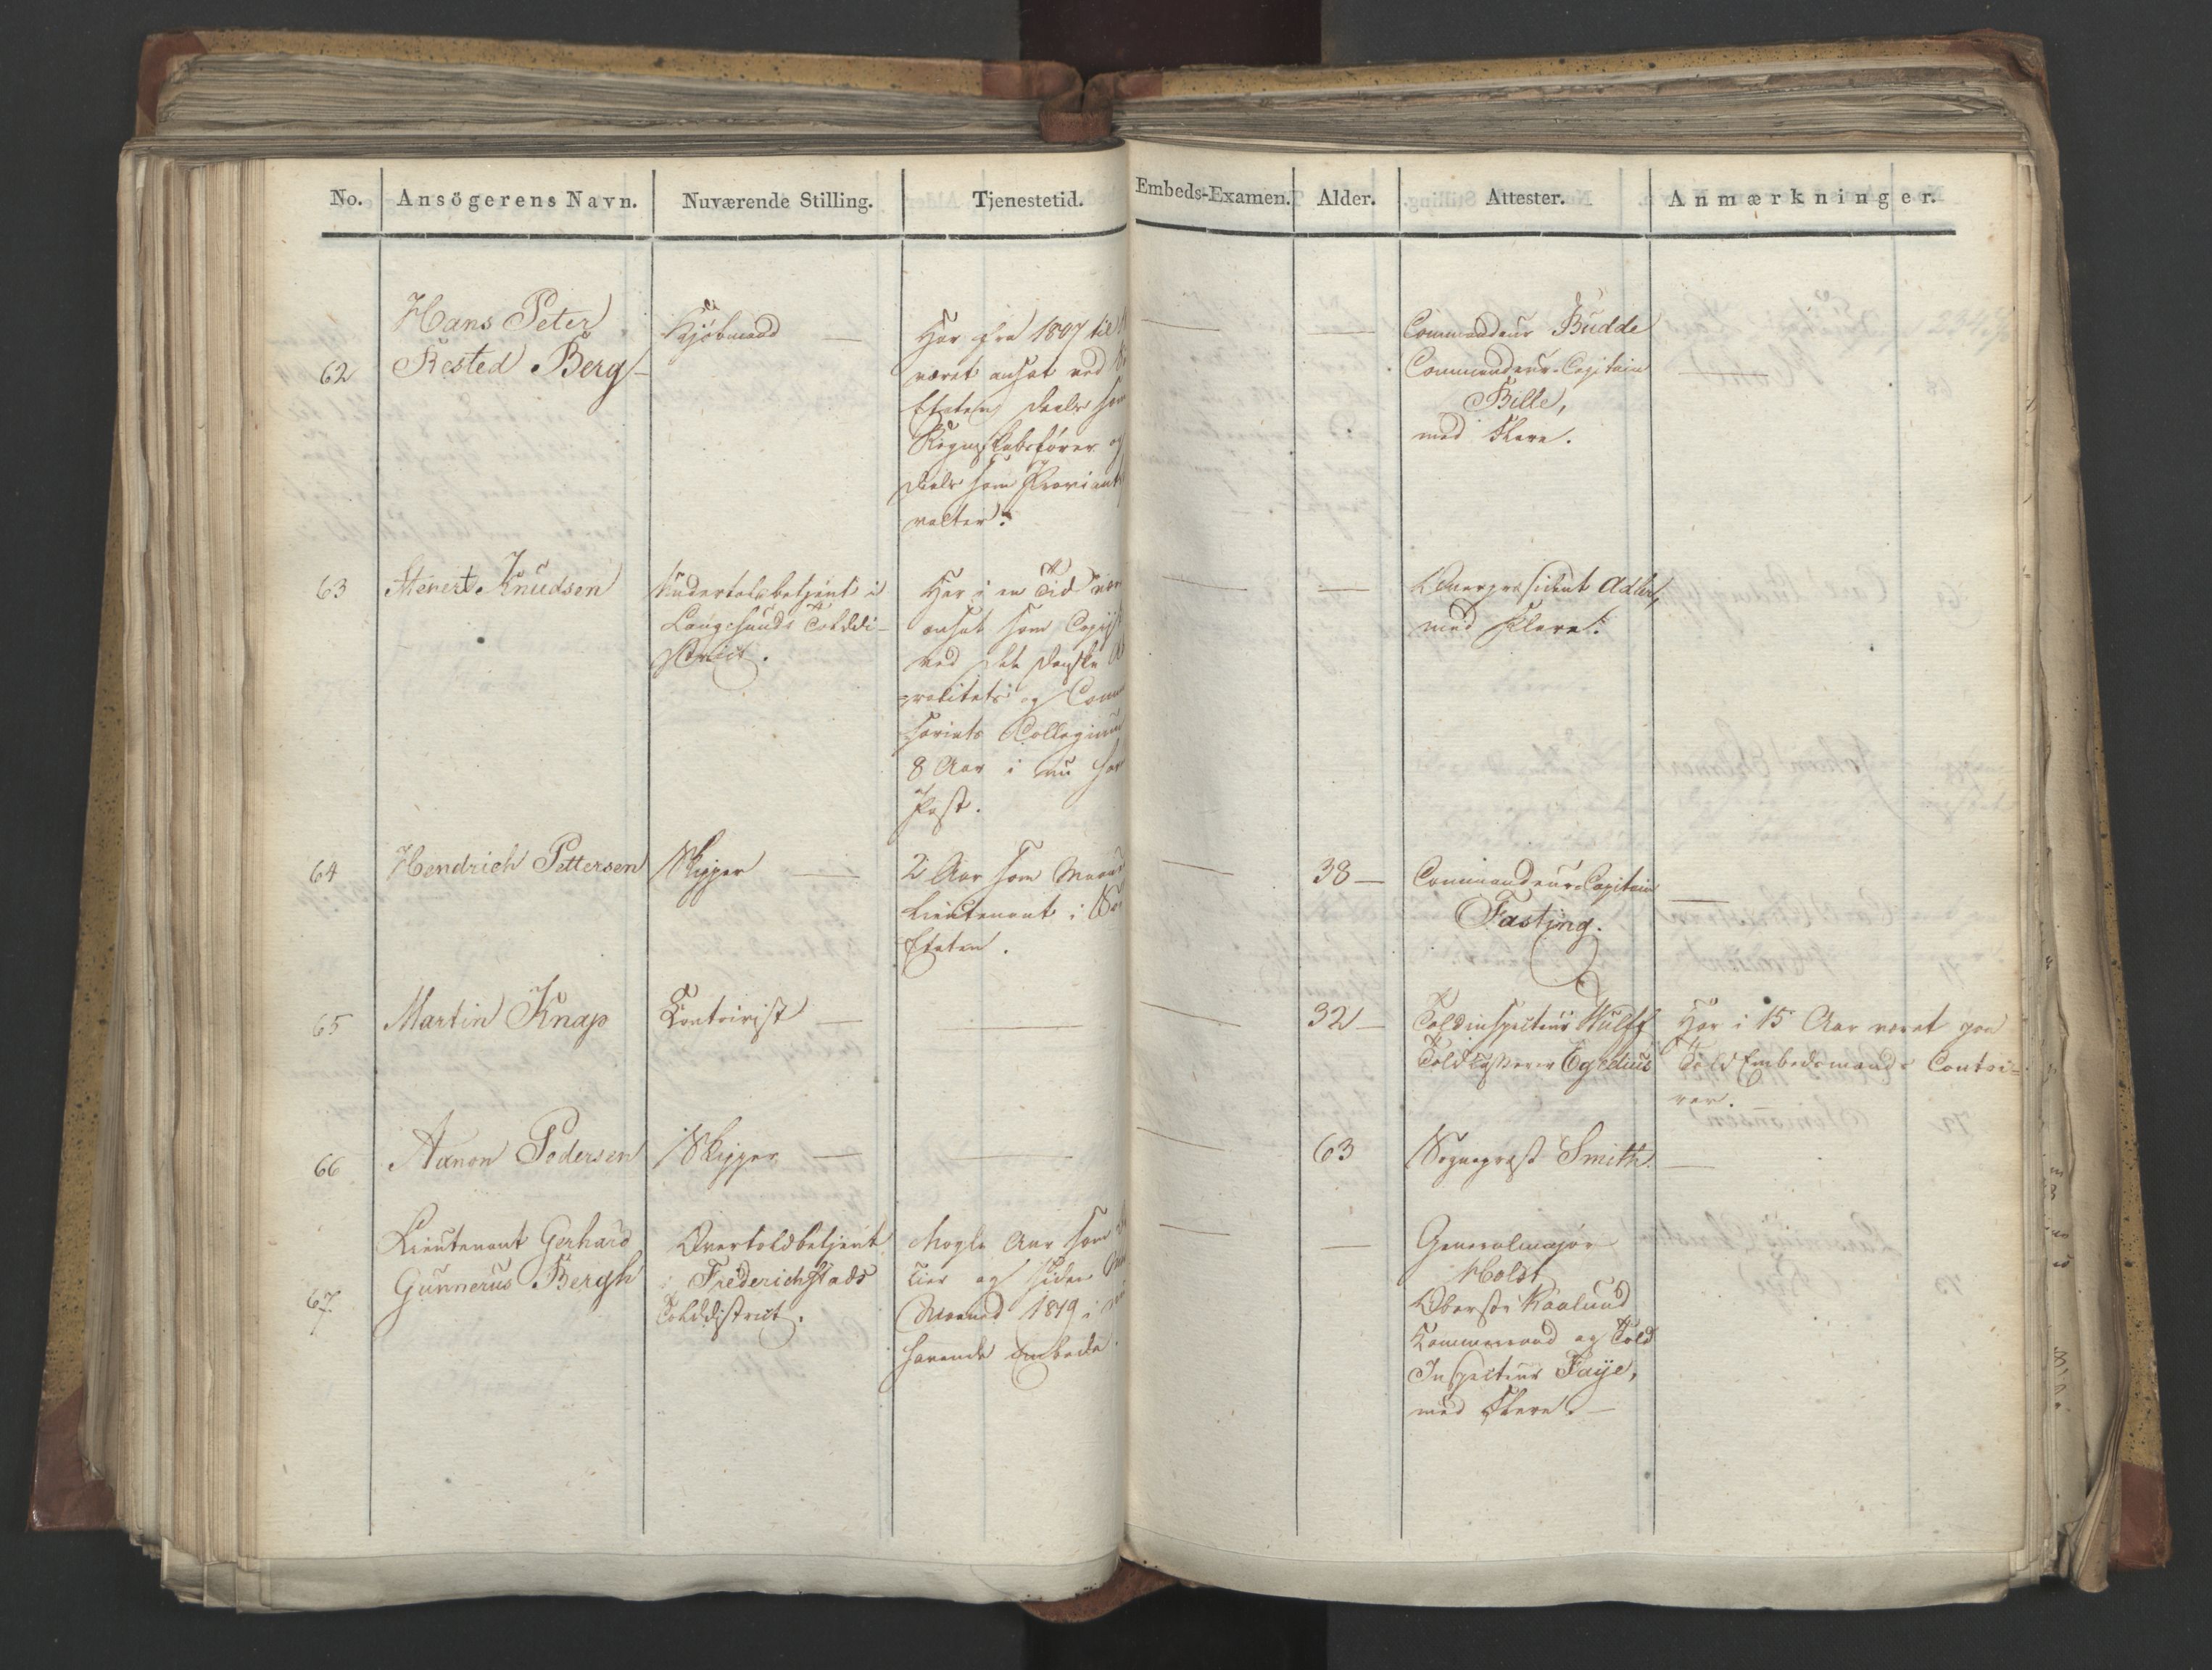 No. Ansögerens Navn. Nuværende Stilling. Tjenestetid. Embeds-Examen. Alder. Attester. Anmærkninger.
62
Hans Peter
Rested Berg
Kjöbmand —
Har fra 1807 til
været ansat ved
Etaten, deels som
Regnskabsförer og
deels som Proviant
valter.
—
—
Commandeur Budde
Commandeur-Capitain
Bille,
med Flere.
—
63
Knudsen
Undertoldbetjent i
Langesunds Tolddi-
strict.
Har i en Tid vær
ansat som Copiist
ved det danske
pralitets og Comm
sariats Collegium
8 Aar i nu hav
Post.
—
—
Overpræsident Adler,
med Flere.
64
Hendrich Pettersen
Skipper —
2 Aar som Maaneds
Lieutenant i
Etaten.
—
38 —
Commandeur-Capitain
Fasting.
—
65
Martin Knap
Contoirist —
—
—
32 —
Toldinspecteur Wulff
Toldkasserer Egidius
Har i 15 Aar været paa
Told Embedsmands Contoi-
rer.
66
Aanon Pedersen
Skipper —
—
—
63
Sognepræst Smith.
—
67
Lieutenant Gerhard
Gunnerus Bergh
Overtoldbetjent
i Frederichstads
Tolddistrict.
Nogle Aar som
cier og siden
Maaned 1819 i
havende Embede.
—
—
Generalmajor
Holst,
Oberst Kaalund
Kammerraad og Told
Inspecteur Faye,
med Flere. —